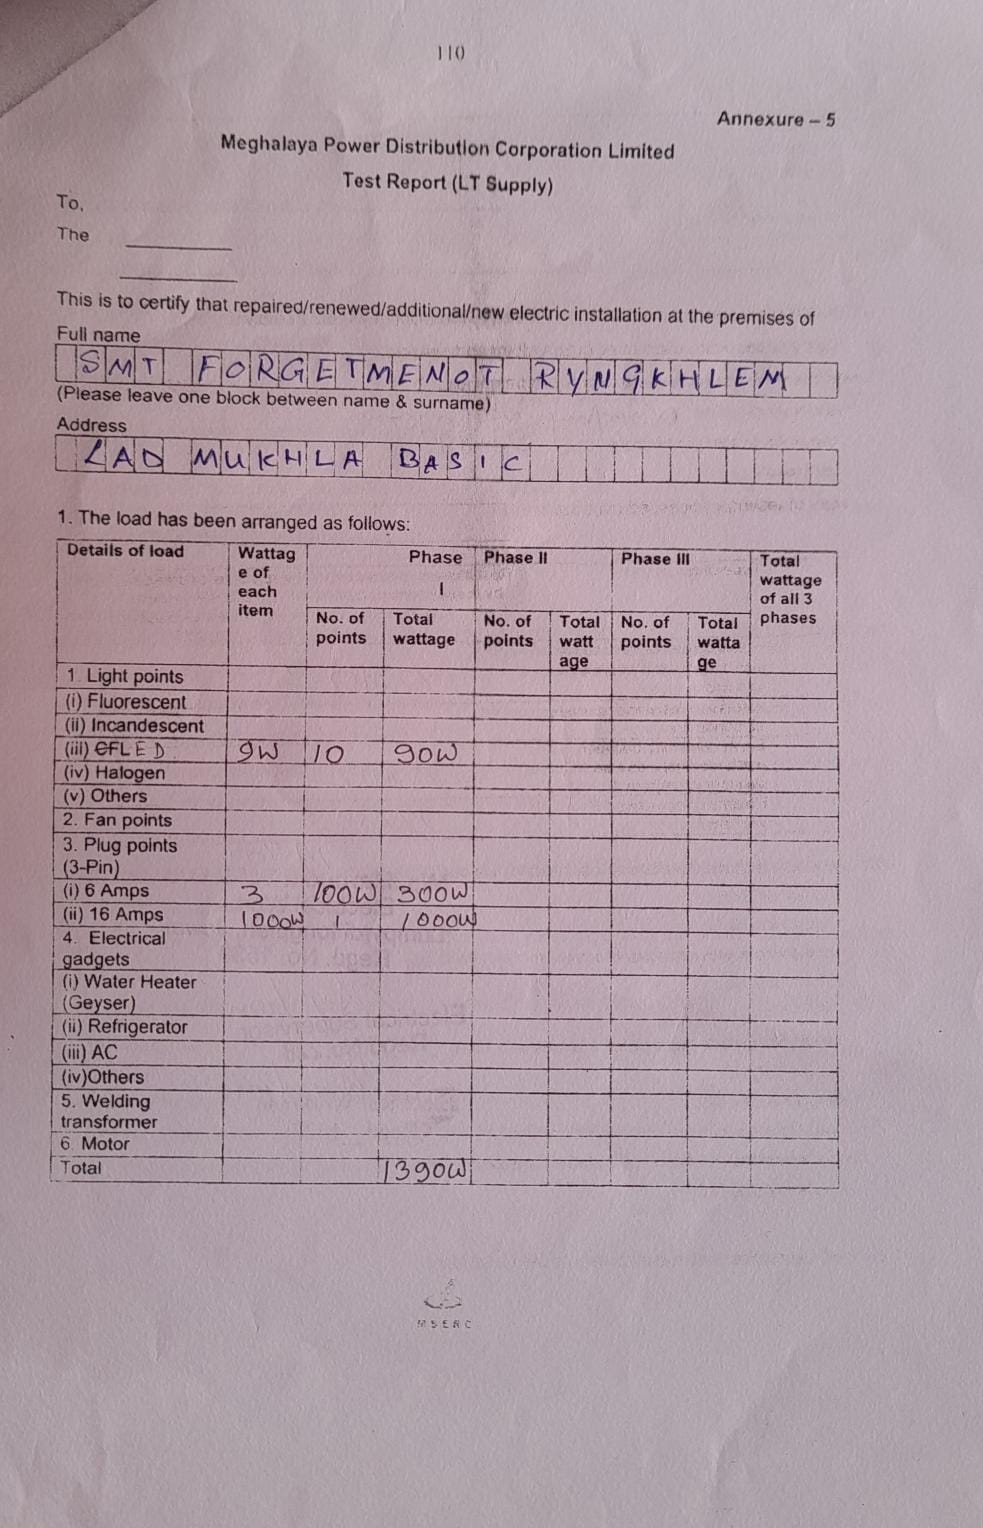 110
Annexure – 5
Meghalaya Power Distribution Corporation Limited
Test Report (LT Supply)
To,
The
This is to certify that repaired/renewed/additional/new electric installation at the premises of
Full name
SMT FORGETMENOT RYNGKHLEM
(Please leave one block between name & surname)
Address
LAD MUKHLA BASIC
1. The load has been arranged as follows:
Details of load Wattag e of each item Phase I Phase II Phase III Total wattage of all 3 phases
No. of points Total wattage No. of points Total watt age No. of points Total watta ge
1 Light points
(i) Fluorescent
(ii) Incandescent
(iii) CFLED 9W 10 90W
(iv) Halogen
(v) Others
2. Fan points
3. Plug points
(3-Pin)
(i) 6 Amps 3 100W 300W
(ii) 16 Amps 1000W 1 1000W
4. Electrical
gadgets
(i) Water Heater
(Geyser)
(ii) Refrigerator
(iii) AC
(iv)Others
5. Welding
transformer
6 Motor
Total 1390W
MSERC